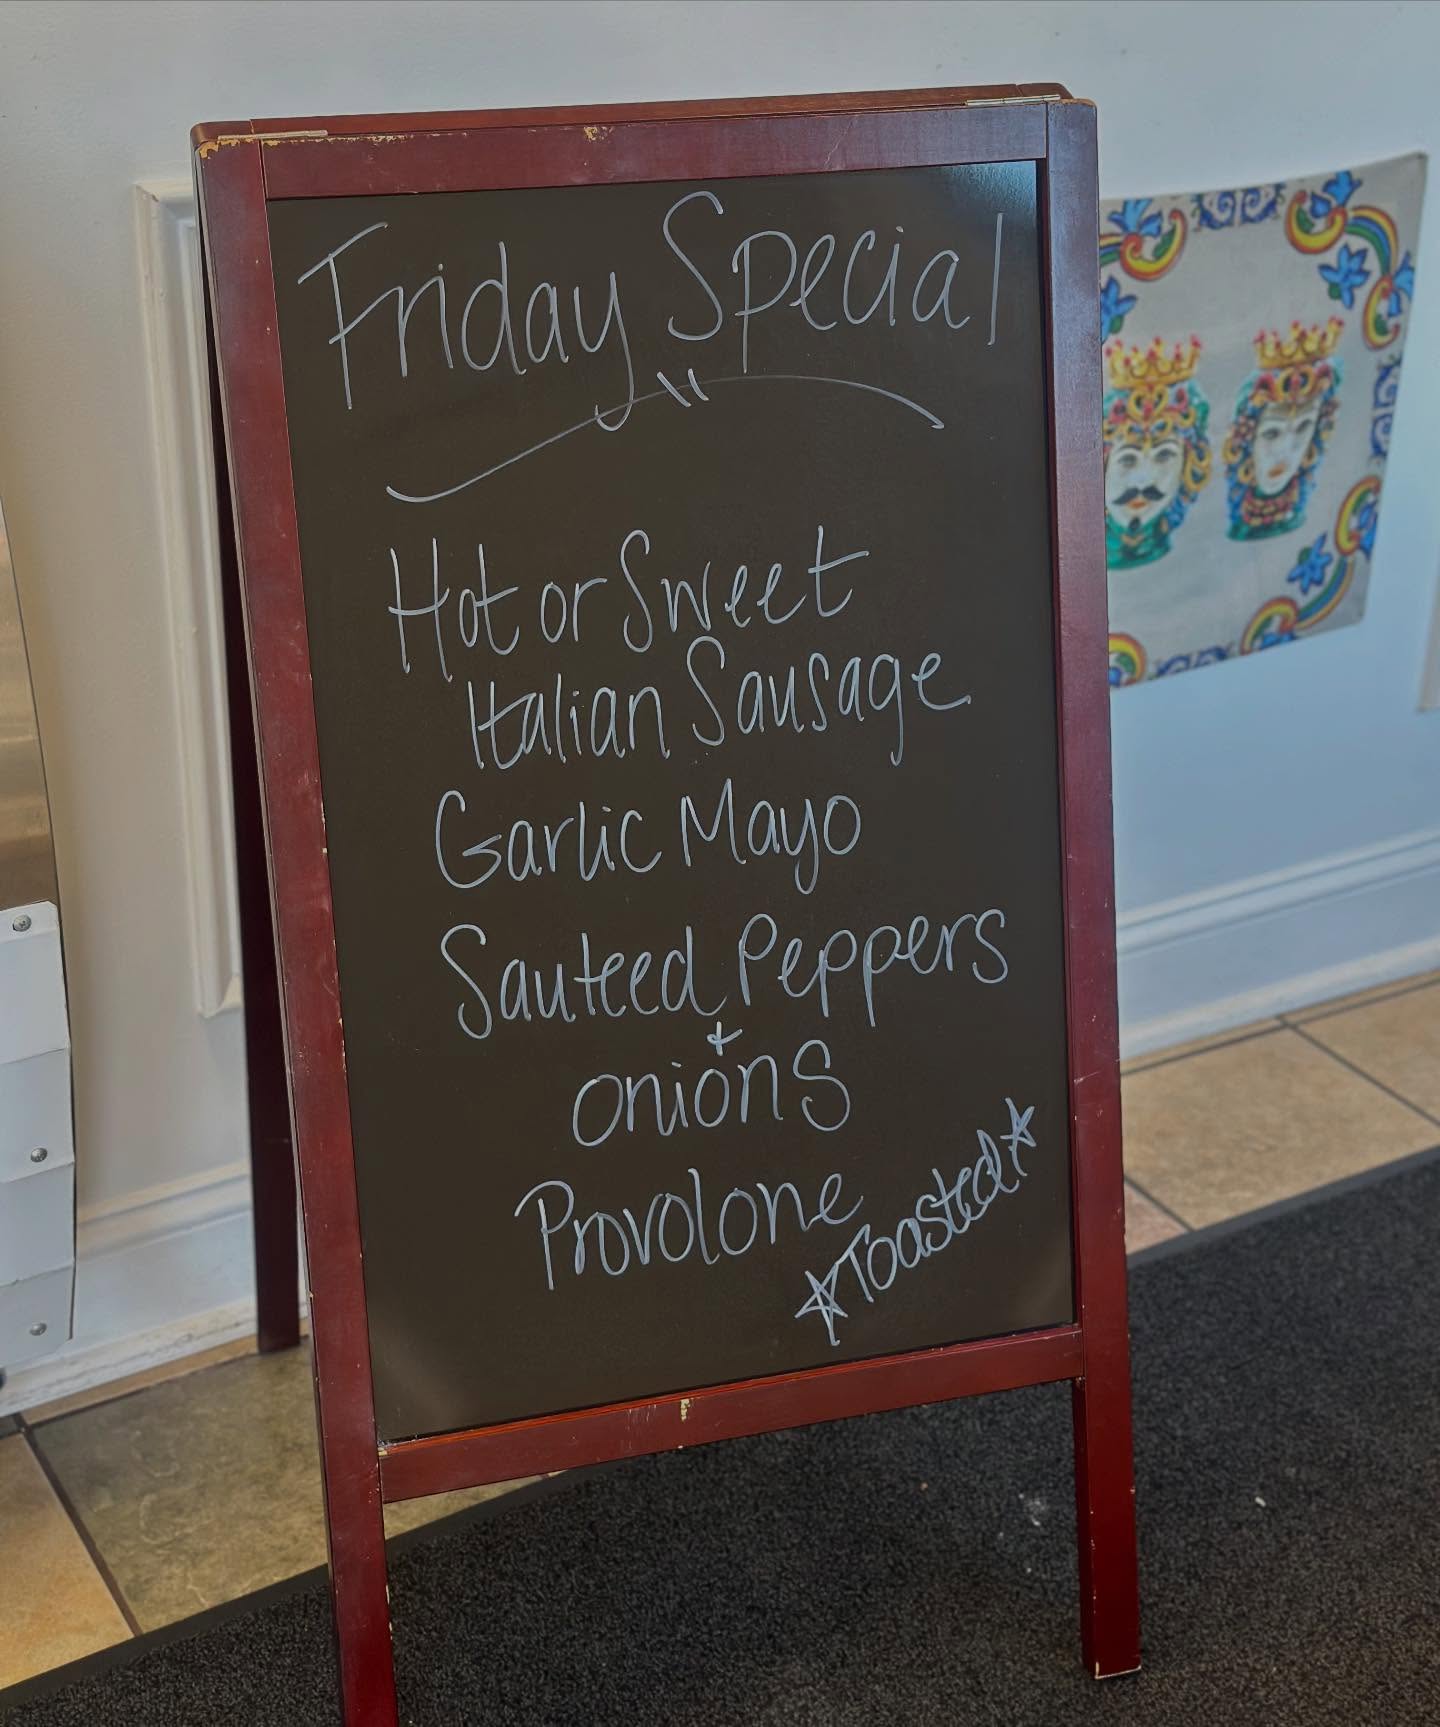 Friday Special
Hot or Sweet
Italian Sausage
Garlic Mayo
Sauteed Peppers
+
onions
Provolone
☆Toasted!☆